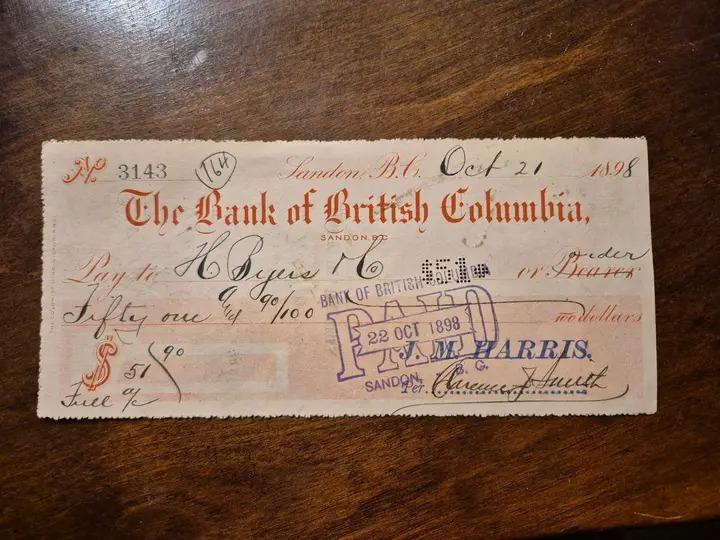 No 3143 164 Sandon, B.C. Oct 21 1898
The Bank of British Columbia,
SANDON, B.C.
Pay to H Byers & Co or Bearer order
Fifty one and 90/100 dollars
BANK OF BRITISH COLUMBIA
PAID
22 OCT 1898
SANDON, B. C.
J. M. HARRIS.
$ 51/90
Per Clarence J Smith
Full a/c